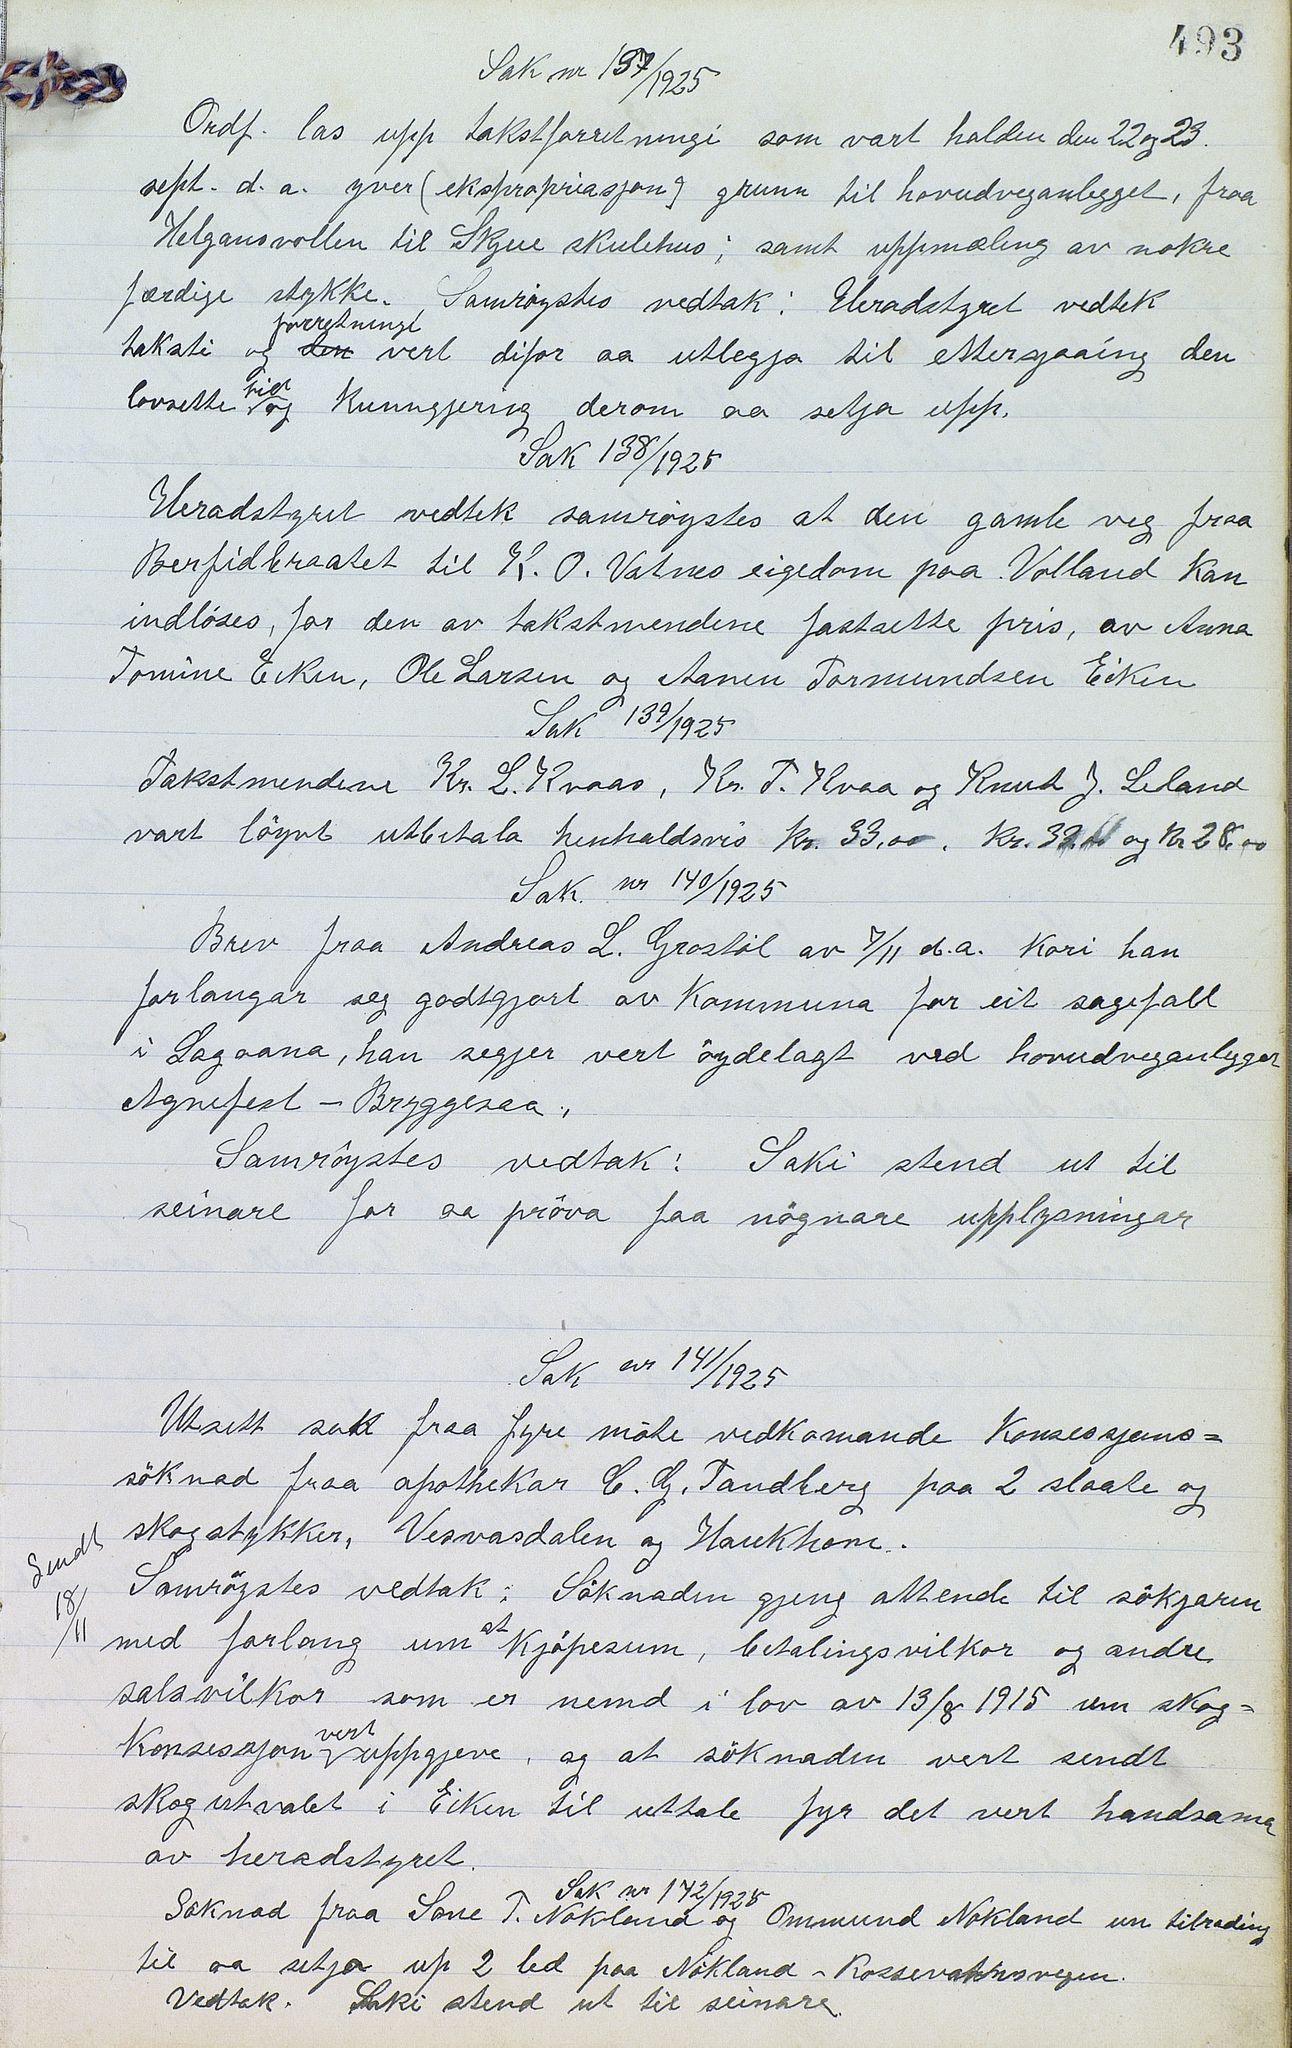 493
Sak nr 137/1925
Ordf. las upp takstforretningi som vart halden den 22 og 23.
sept. d. a. yver (ekspropriasjon) grunn til hovudveganlegget, fraa
Helgansvollen til Skjue skulehus; samt uppmæling av nokre
færdige stykke. Samröystes vedtak: Heradstyret vedtek
taksti og forretningi vert difor aa utlegja til ettersjaaing den
lovsette tid og kunngjering derom aa setja upp.
Sak 138/1925
Heradstyret vedtek samröystes at den gamle veg fraa
til K. O. Vatnes eigedom paa Volland kan
indlöses, for den av takstmendene fastsette pris, av Anna
Tomine Eiken, Ole Larsen og Aanen Tormundsen Eiken
Sak 139/1925
Takstmendene Kr. L. Kvaas, Kr. T. Hvaa og Knut J. Leland
vart löyvt utbetala henhaldsvis kr. 33,00, kr. og kr 28,00
Sak. nr 140/1925
Brev fraa Andreas L. Grostöl av 7/11 d.a. Kori han
forlangar seg godtgjort av Kommuna for eit sagefall
i Lagaana, han segjer vert öydelagt ved hovudveganlegget
Agnefest - Bryggesaa.,
Samröystes vedtak: Saki stend ut til
seinare for aa pröva faa nögnare upplysningar
Sak nr 141/1925
Utsett sak fraa fyre möte vedkomande Konsessjons=
söknad fraa apothekar C. G. Tandberg paa 2 slaate og
skogstykker, Vesvasdalen og Haukhom.
Sendt 18/11
Samröystes vedtak: Söknaden gjeng attende til sökjaren
med forlang um at Kjöpesum, betalingsvilkor og andre
salsvilkor som er nemd i lov av 13/8 1915 um skog=
konsessjon vert uppgjeve, og at söknaden vert sendt
skogutvalet i Eiken til uttale fyr det vert handsama
av heradstyret.
Sak nr 142/1925
Söknad fraa Sone T. Nökland og Ommund Nökland um tilrading
til aa setja up 2 led paa Nökland - Rossevatnsvegen.
Vedtak. Saki stend ut til seinare.